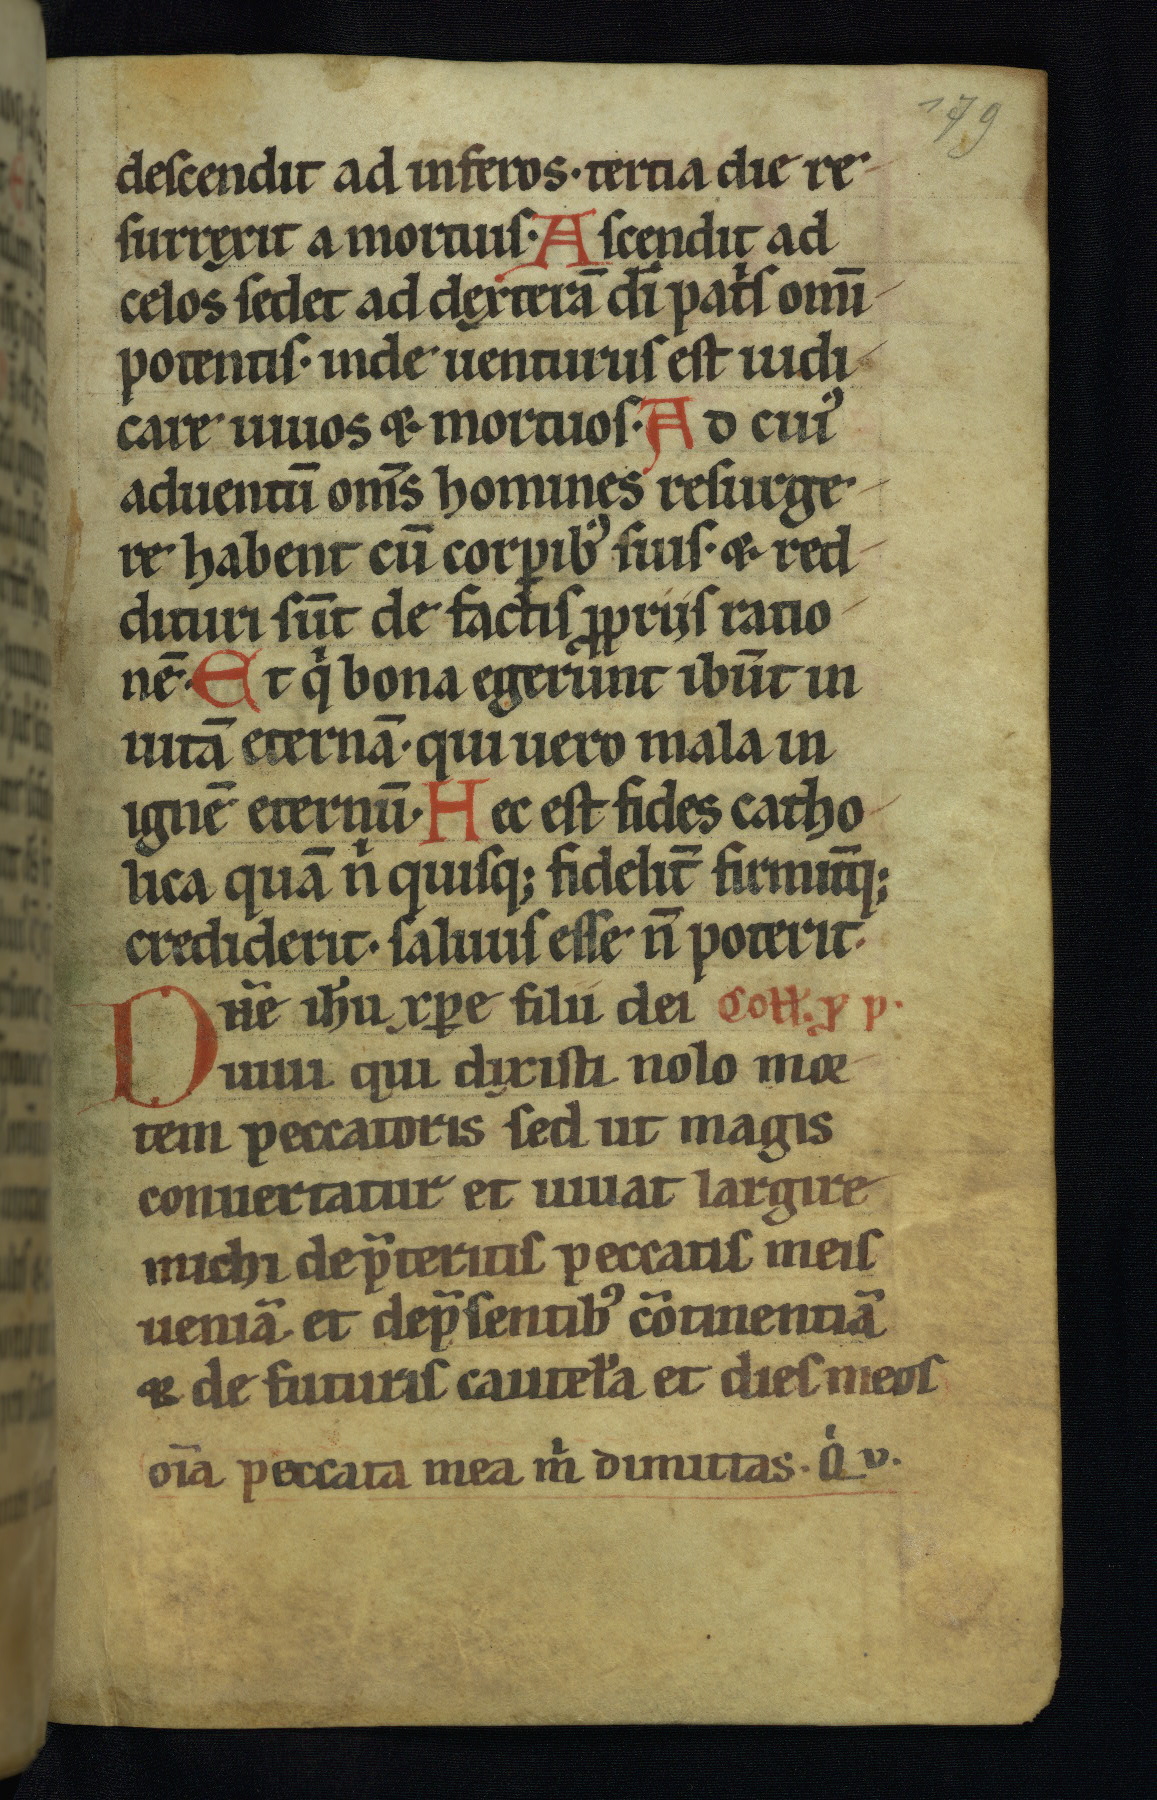 179
descendit ad inferos· tertia die re
surrexit a mortuis· Ascendit ad
celos sedet ad dexterā dī pat̍s om̄i
potentis· inde uenturus est iudi
care uiuos & mortuos· Ad cui᾽
aduentū om̄s homines resurge
re habent cū corꝑib᾽ suis· & red
dituri sūt de factis ꝓpriis ratio
nē· Et q̍ bona egerūnt ibūt in
uitā eternā· qui uero mala in
ignē eternū· Hec est fides catho
lica quā n̍ quisq; fidelit̄ firmit̄q;
crediderit· saluus esse n̄ poterit·
Dn̄e ih̄u xp̄e filii dei Coll̄. ꝓ p·
uiui qui dixisti nolo mor
tem peccatoris sed ut magis
conuertatur et uiuat largire
michi de p̄teritis peccatis meis
ueniā et de p̄sentib᾽ c̄otinentiā
& de futuris cautel̄a et dies meos
oīa peccata mea m̍ dimittas· Q̍ v·